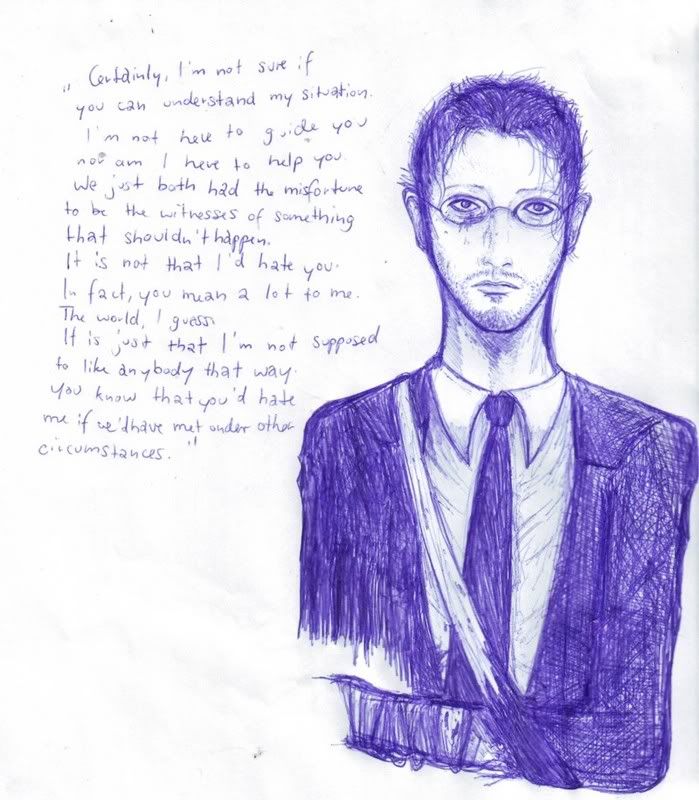 „ Certainly, I'm not sure if
you can understand my situation.
I'm not here to guide you
nor am I here to help you.
We just both had the misfortune
to be the witnesses of something
that shouldn't happen.
It is not that I'd hate you.
In fact, you mean a lot to me.
The world, I guess.
It is just that I'm not supposed
to like anybody that way.
You know that you'd hate
me if we'd have met under other
circumstances. "